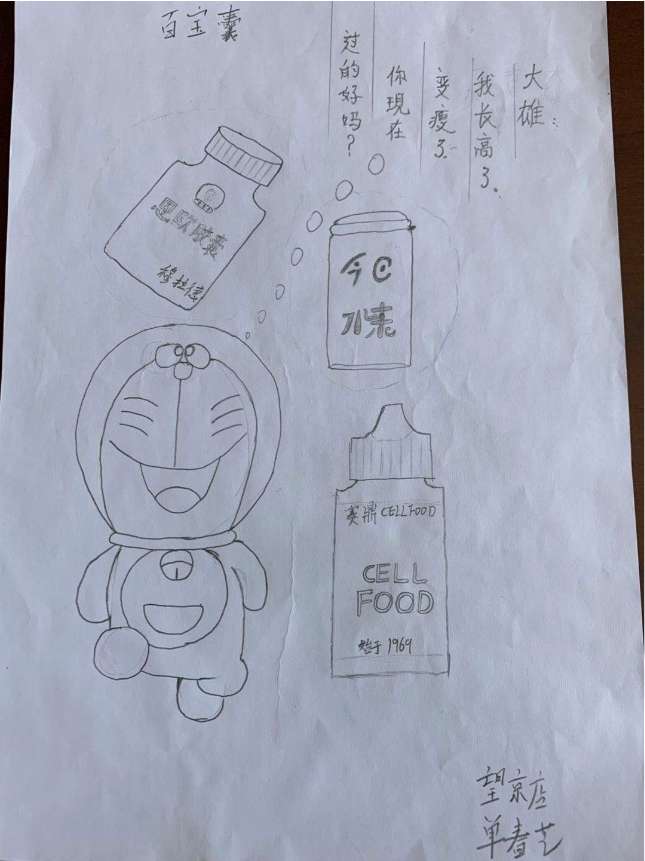 百宝囊
大雄：
我长高了、
变瘦了…
你現在
过的好吗？
思欧胶囊
穆拉德
今日
水素
赛鼎CELLFOOD
CELL
FOOD
始于1969
望京店
单春芝